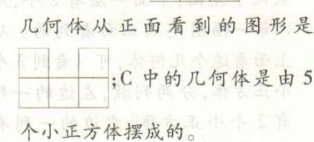 几何体从正面看到的图形是
;C 中的几何体是由 5
个小正方体摆成的。